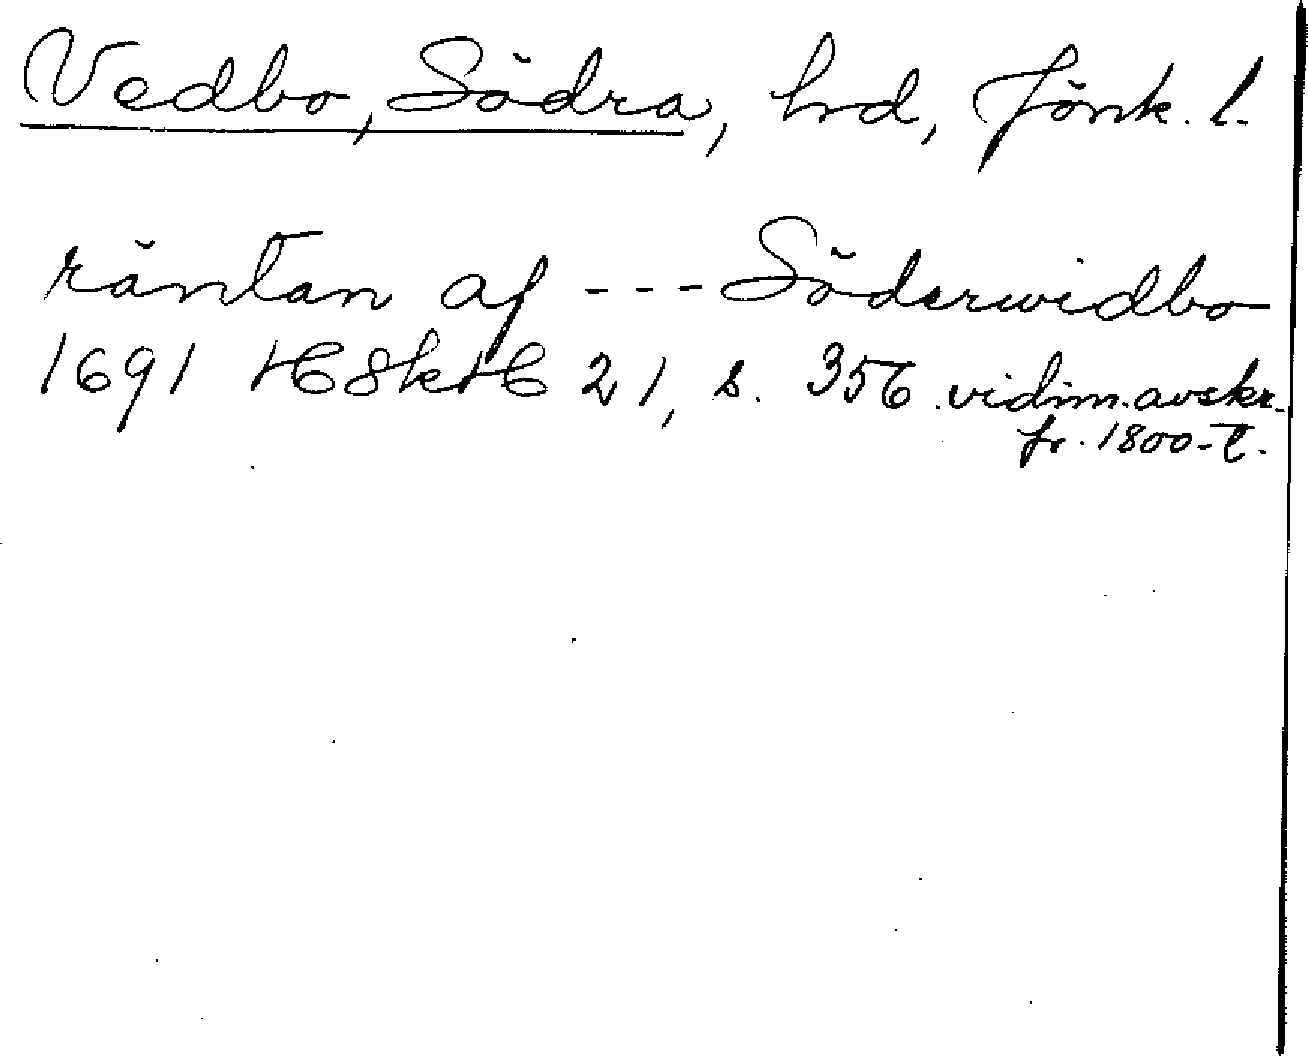 Vedbo, Södra, hrd, Jönk. l.
räntan af --- Söderwidbo
1691 HSkH 21, s. 356 vidim. avskr.
fr. 1800-t.